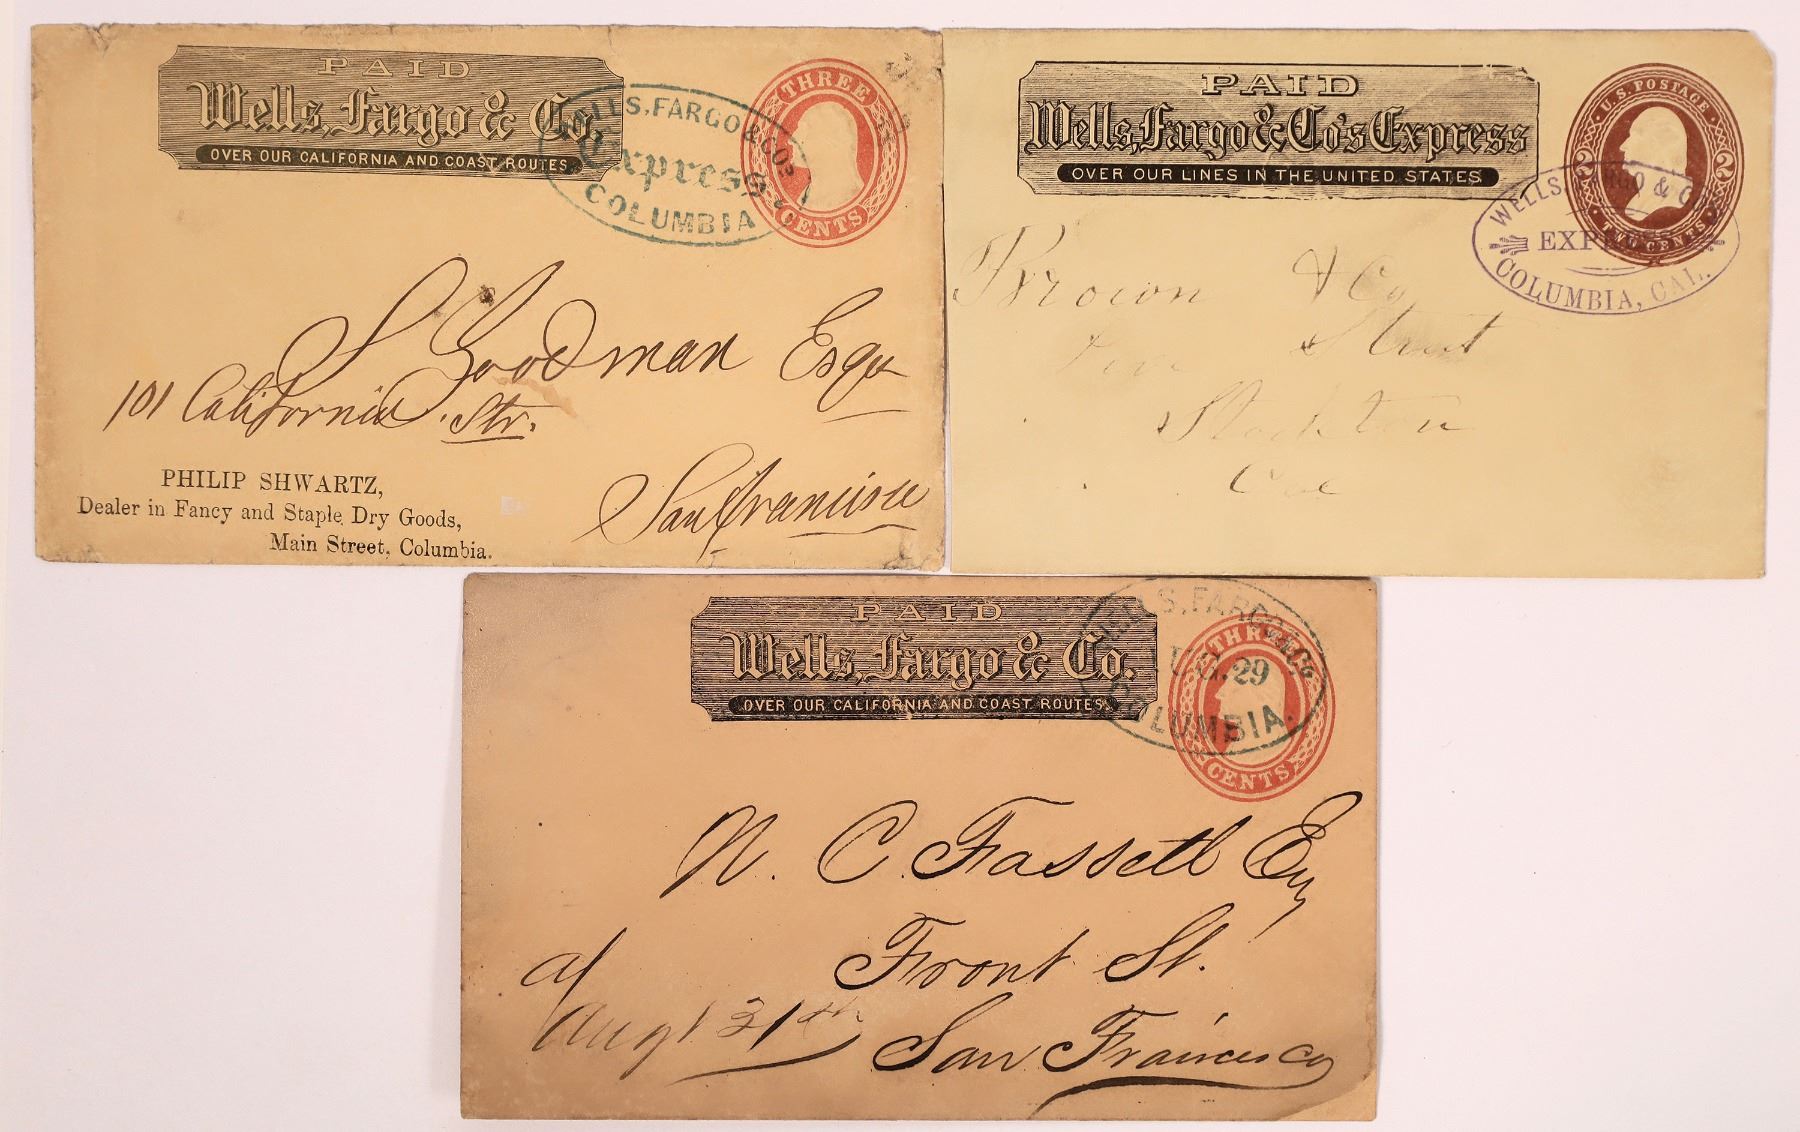 PAID
Wells, Fargo & Co.
OVER OUR CALIFORNIA AND COAST ROUTES.
WELLS, FARGO & CO'S
Express
COLUMBIA
THREE
CENTS
S Goodman Esqr
101 California Str.
San Francisco
PHILIP SHWARTZ,
Dealer in Fancy and Staple Dry Goods,
Main Street, Columbia.
PAID
Wells, Fargo & Co's Express
OVER OUR LINES IN THE UNITED STATES
U.S. POSTAGE
2 2
TWO CENTS
WELLS FARGO & CO
EXPRESS
COLUMBIA, CAL.
Brown & Co
Street
Stockton
Cal
PAID
Wells, Fargo & Co.
OVER OUR CALIFORNIA AND COAST ROUTES.
WELLS, FARGO & Co
29
COLUMBIA.
THREE
CENTS
N. C. Fassett Esq
Front St.
San Francisco
a/
Augt 31th